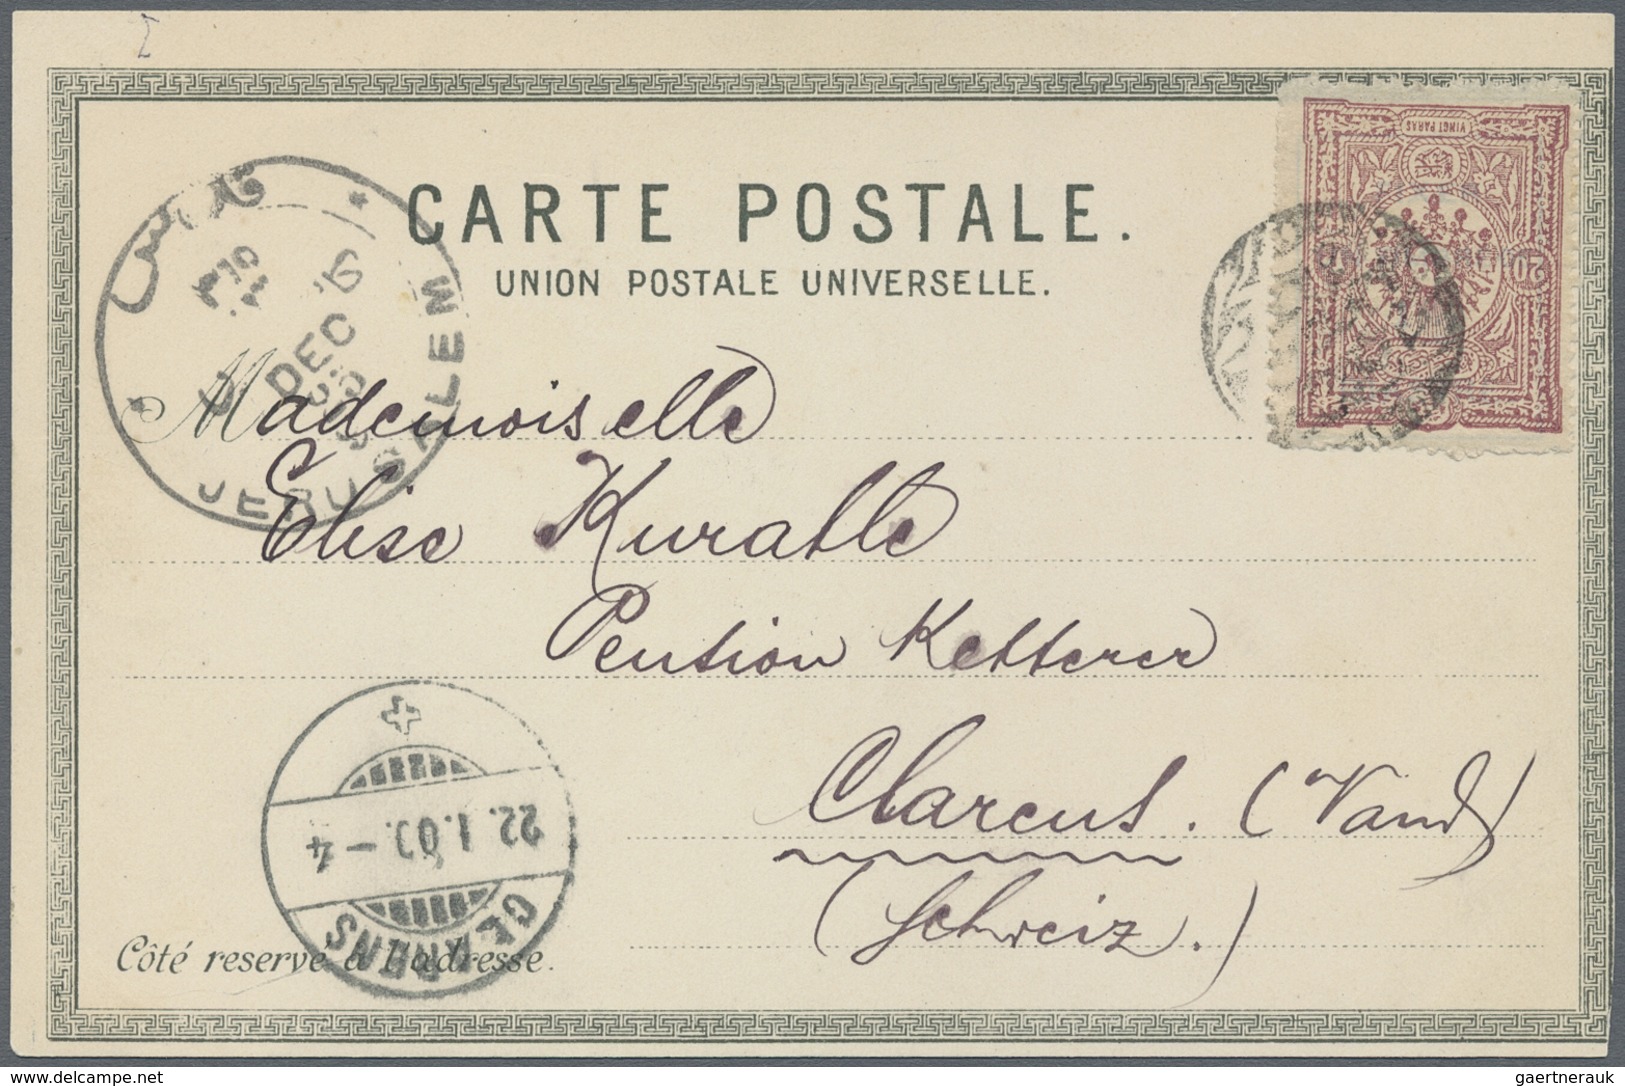 CARTE POSTALE.
UNION POSTALE UNIVERSELLE.
VINGT PARAS
20
قدس
DEC
JERUSALEM
Mademoiselle
Elise Kuratle
Pention Ketterer
Clarens. (Vaud)
(Schweiz.)
22. I. 00. - 4
Côté reservé à l'adresse.
gaertnerauk